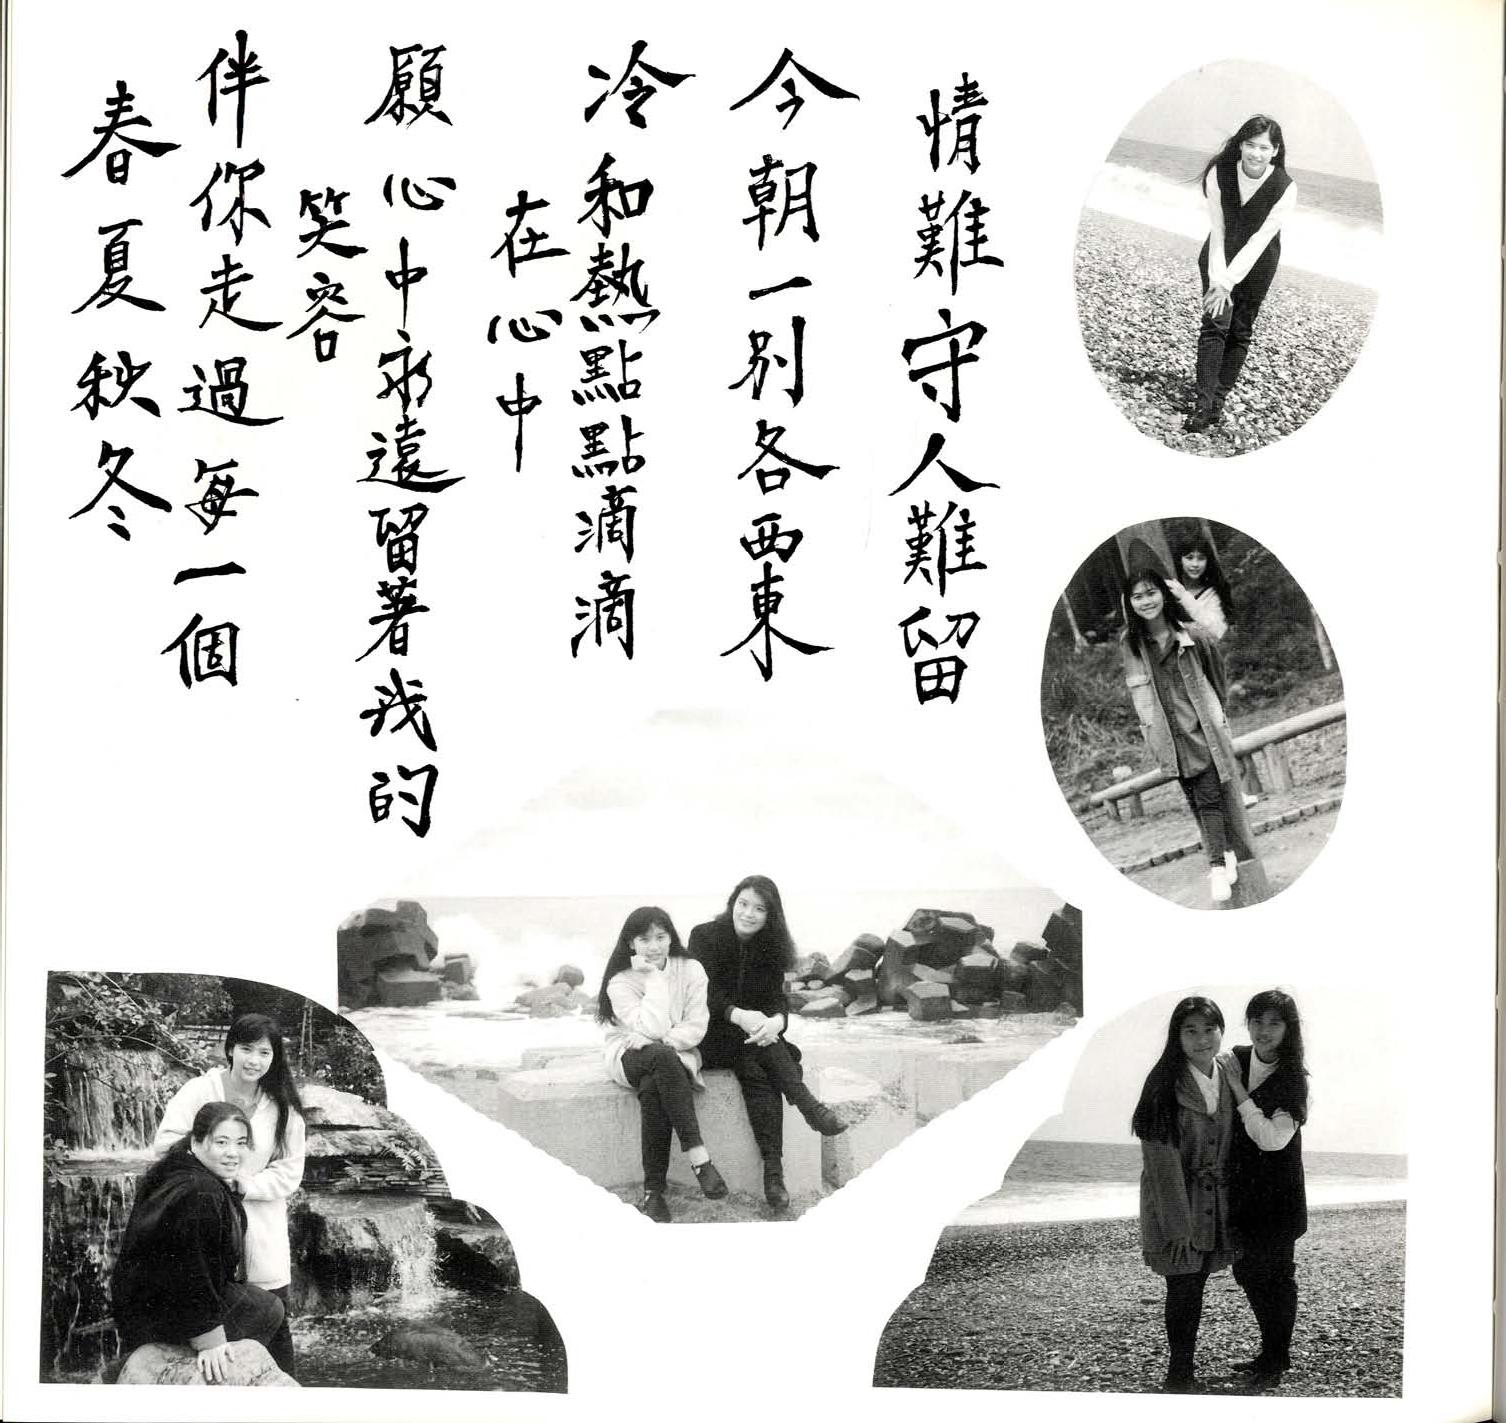 情難守人難留
今朝一別各西東
冷和熱點點滴滴
在心中
願心中永遠留著我的
笑容
伴你走過每一個
春夏秋冬